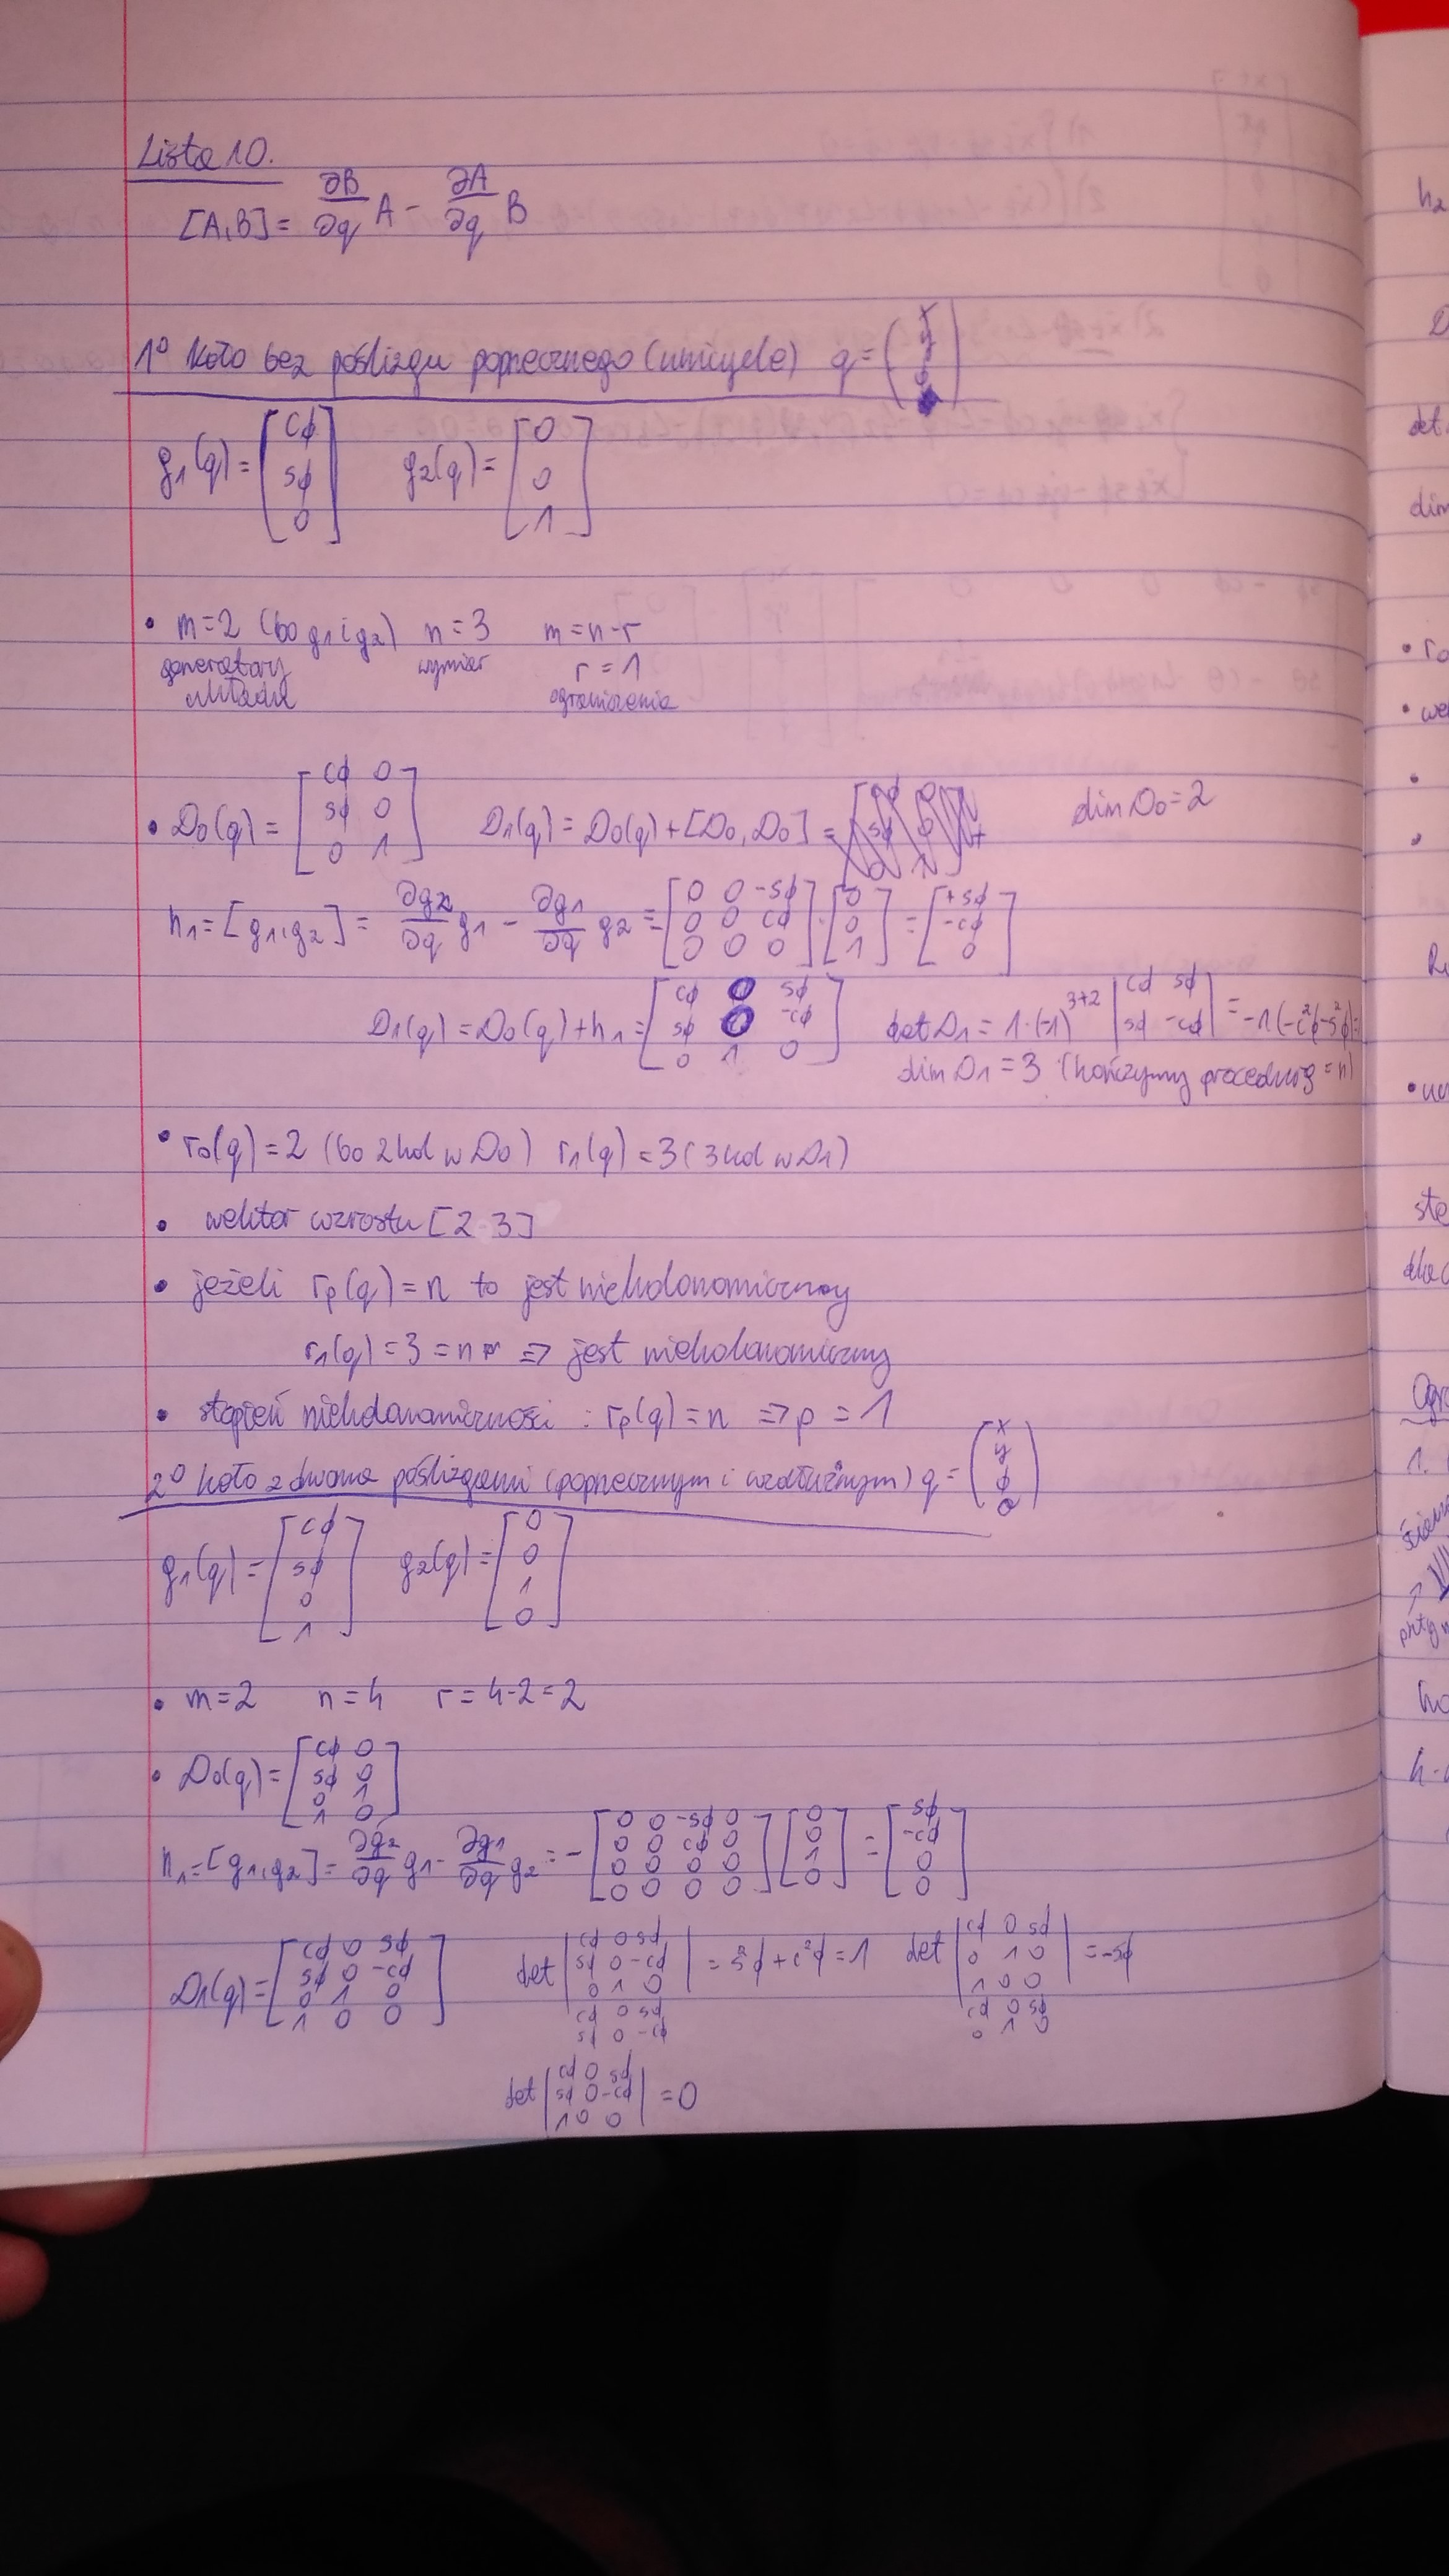 Lista 10.
[A,B] = ∂B/∂q A − ∂A/∂q B
1° koło bez poślizgu poprzecznego (unicycle) q = (x y ϕ)
g₁(q) = [cϕ sϕ 0] g₂(q) = [0 0 1]
• m=2 (bo g₁ i g₂) n=3 m=n-r
generatory układu wymiar r=1
ograniczenia
• D₀(q) = [cϕ 0; sϕ 0; 0 1] D₁(q) = D₀(q) + [D₀, D₀] = dim D₀ = 2
h₁ = [g₁,g₂] = ∂g₂/∂q g₁ − ∂g₁/∂q g₂ = [0 0 -sϕ; 0 0 cϕ; 0 0 0] · [0 0 1] = [+sϕ -cϕ 0]
D₁(q) = D₀(q) + h₁ = [cϕ 0 sϕ; sϕ 0 -cϕ; 0 1 0] det D₁ = 1·(-1)³⁺² |cϕ sϕ; sϕ -cϕ| = -1·(-c²ϕ-s²ϕ)=
dim D₁ = 3 (kończymy procedurę = n)
• r₀(q) = 2 (bo 2 kol w D₀) r₁(q) = 3 (3 kol w D₁)
• wektor wzrostu [2 3]
• jeżeli rₚ(q) = n to jest nieholonomiczny
r₁(q) = 3 = n ⇒ jest nieholonomiczny
• stopień nieholonomiczności : rₚ(q) = n ⇒ p = 1
2° koło z dwoma poślizgami (poprzecznym i wzdłużnym) q = (x y ϕ θ)
g₁(q) = [cϕ sϕ 0 1] g₂(q) = [0 0 1 0]
• m=2 n=4 r=4-2=2
• D₀(q) = [cϕ 0; sϕ 0; 0 1; 1 0]
h₁ = [g₁,g₂] = ∂g₂/∂q g₁ − ∂g₁/∂q g₂ = − [0 0 -sϕ 0; 0 0 cϕ 0; 0 0 0 0; 0 0 0 0] [0 0 1 0] = [sϕ -cϕ 0 0]
D₁(q) = [cϕ 0 sϕ; sϕ 0 -cϕ; 0 1 0; 1 0 0] det |cϕ 0 sϕ; sϕ 0 -cϕ; 0 1 0| = s²ϕ + c²ϕ = 1 det |cϕ 0 sϕ; 0 1 0; 1 0 0| = -sϕ
cϕ 0 sϕ cϕ 0 sϕ
sϕ 0 -cϕ 0 1 0
det |cϕ 0 sϕ; sϕ 0 -cϕ; 1 0 0| = 0
h₂
det
dim
• r₀